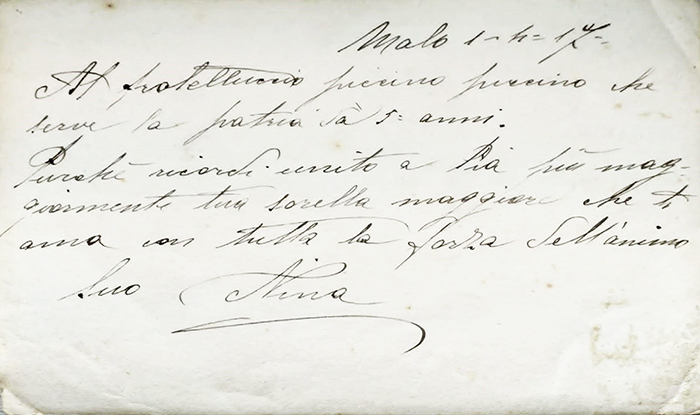 Malo 1-4-17-
Al fratelluccio piccino piccino che
serve la patria da 5= anni.
Purchè ricordi unito a Pia più mag-
giormente tua sorella maggiore che ti
ama con tutta la forza dell'animo
suo Nina